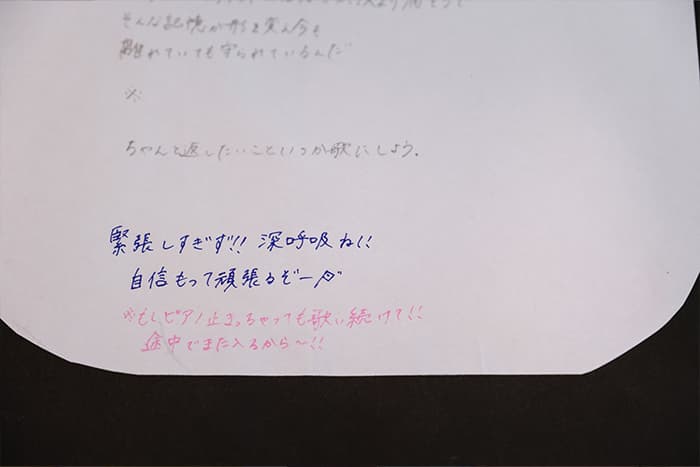 そんな記憶が形を変え今も
離れていても守られているんだ
※
ちゃんと返したいこといつか歌にしよう.
緊張しすぎず!! 深呼吸ね!!
自信もって頑張るぞーダ
※もしピアノ止まっちゃっても歌い続けて!!
途中でまた入るから〜!!